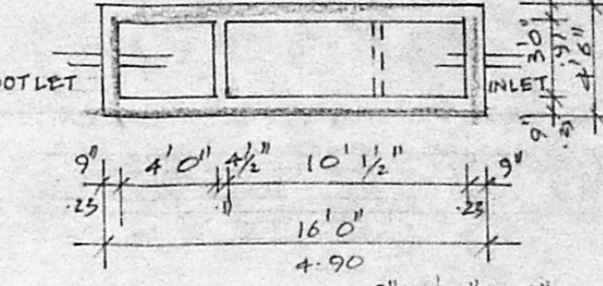 OUTLET
INLET
3'0"
.91
4'6"
9"
9" 4'0" 4½" 10'1½" 9"
.23 .11 .23
16'0"
4.90